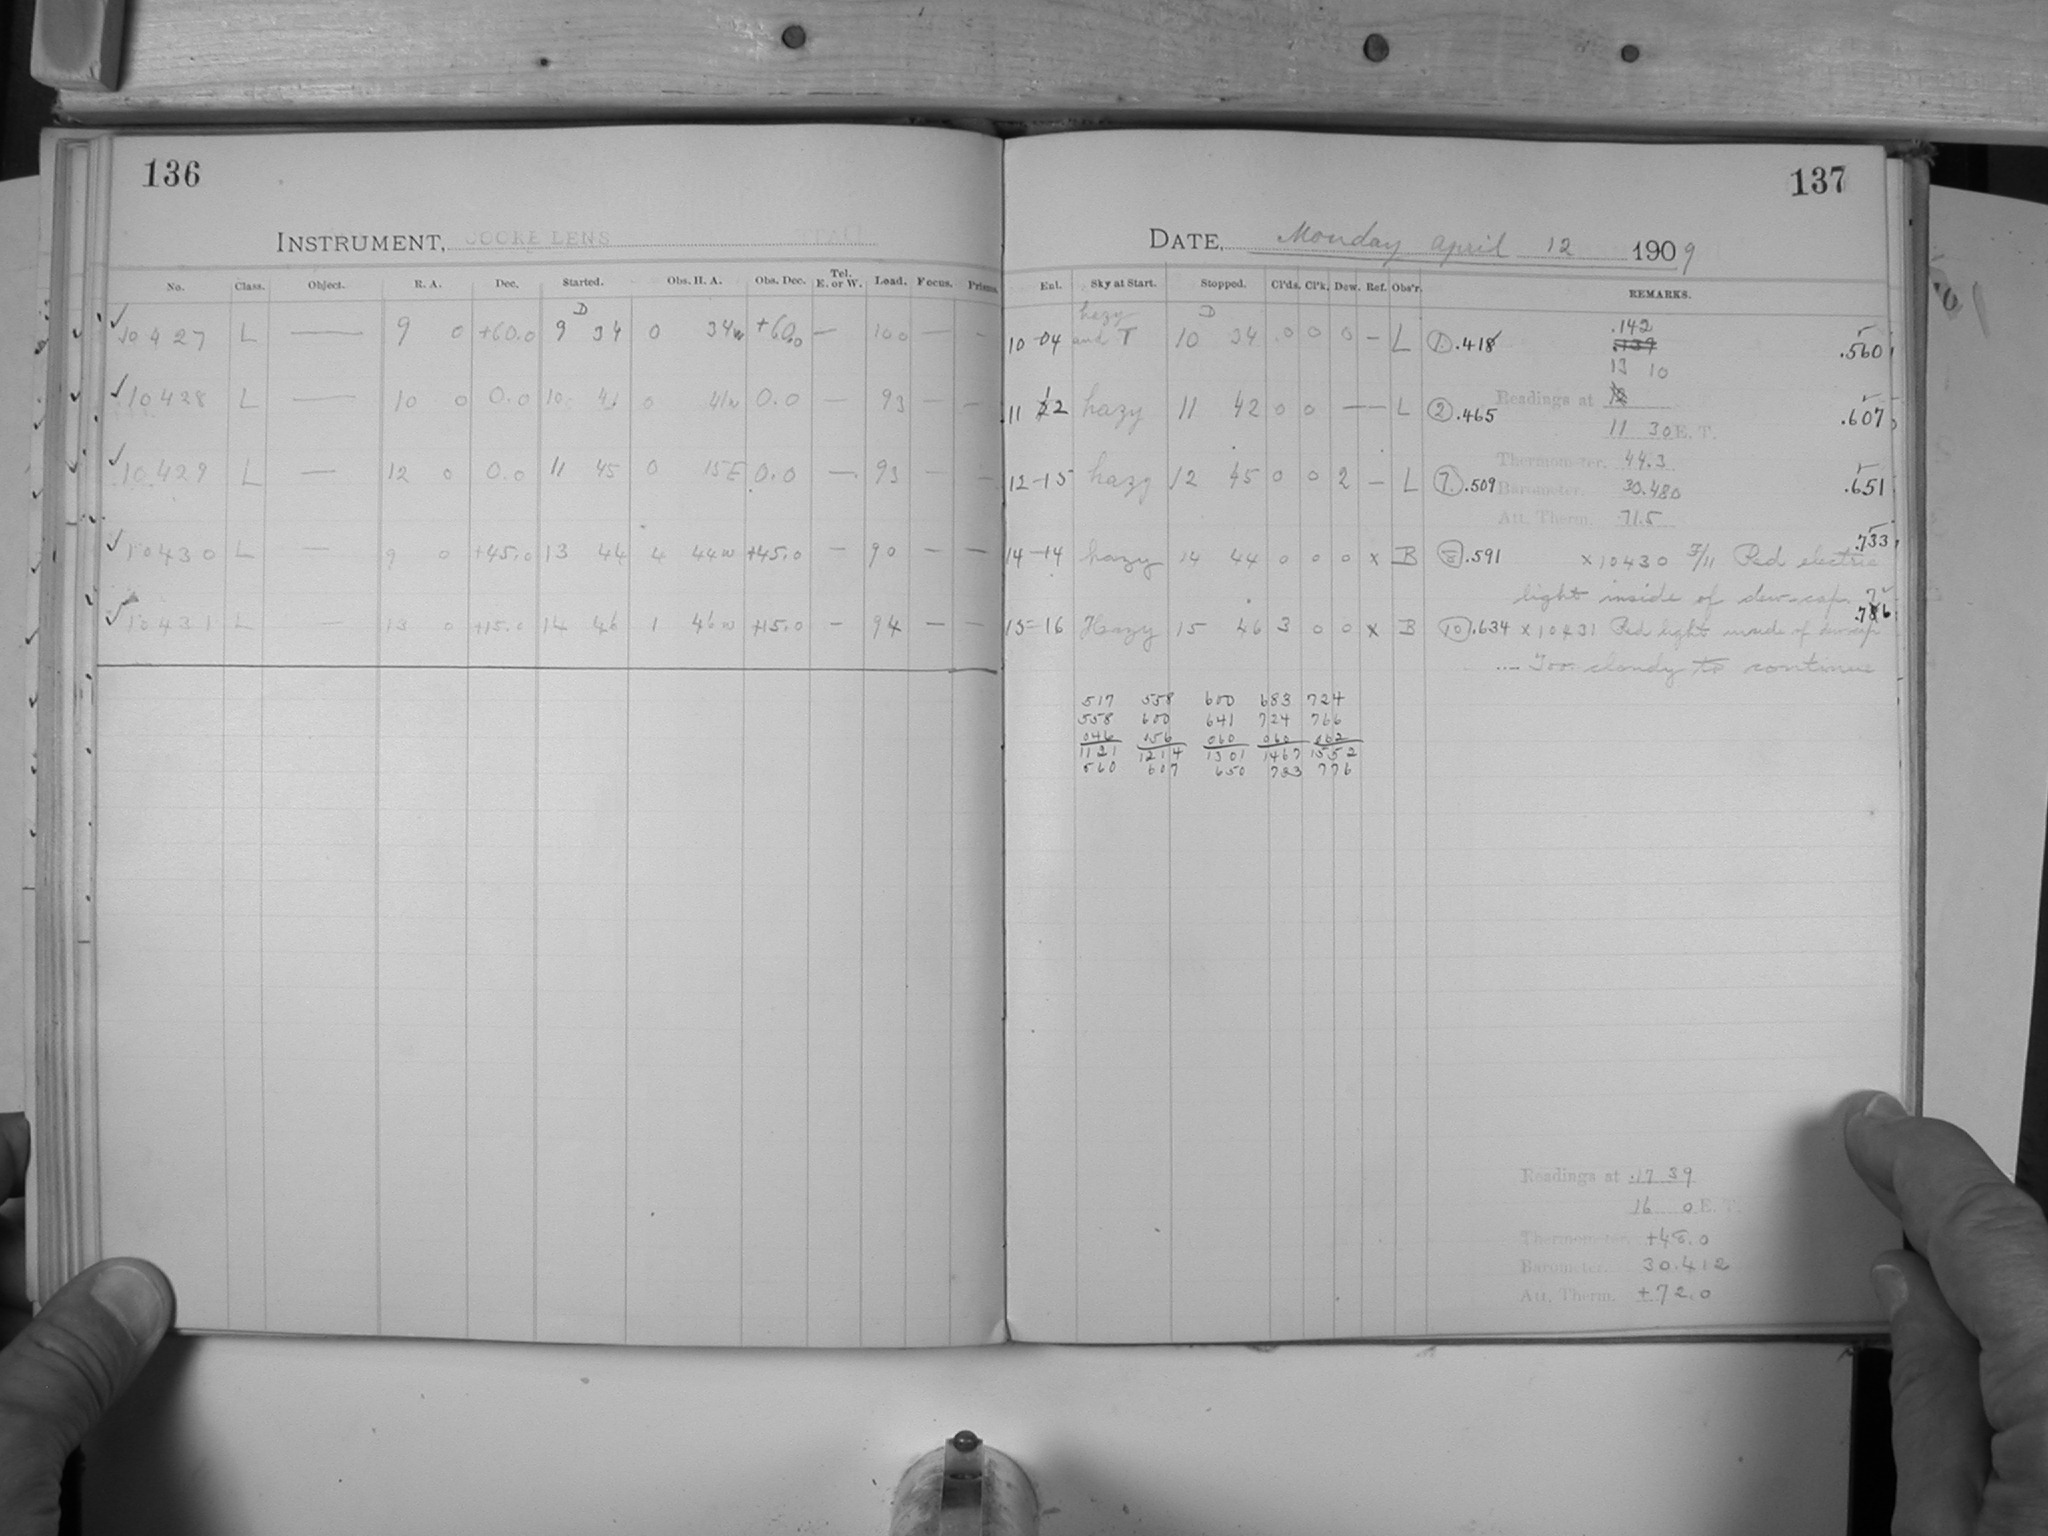 136
INSTRUMENT, COOKE LENS
No. Class. Object. R. A. Dec. Started. Obs. H. A. Obs. Dec. Tel. E. or W. Load. Focus. Prisms.
D
10427 L — 9 0 +60.0 9 34 0 34w +60.0 — 100 — —
10428 L — 10 0 0.0 10 41 0 41w 0.0 — 93 — —
10429 L — 12 0 0.0 11 45 0 15E 0.0 — 93 — —
10430 L — 9 0 +45.0 13 44 4 44w +45.0 — 90 — —
10431 L — 13 0 +15.0 14 46 1 46w +15.0 — 94 — —
137
DATE, Monday April 12 1909
Exl. Sky at Start. Stopped. Cl'ds. Cl'k. Dew. Ref. Obs'r. REMARKS.
hazy D .142
10-04 and T 10 34 0 0 0 — L 1 .418 .560
13 10
Readings at
11 12 hazy 11 42 0 0 — — L 2 .465 .607
11 30 E. T.
Thermometer. 44.3
12-15 hazy 12 45 0 0 2 — L 7 .509 .651
Barometer. 30.480
Att. Therm. 71.5
14-14 hazy 14 44 0 0 0 x B 8 .591 .733
x 10430 F/11 Red electric
light inside of dew-cap.
15-16 Hazy 15 46 3 0 0 x B 10 .634 x 10431 Red light inside of dewcap .776
.... Too cloudy to continue
517 558 600 683 724
558 600 641 724 766
046 056 060 060 062
1121 1214 1301 1467 1552
560 607 650 733 776
Readings at .17 39
16 0 E. T.
Thermometer. +48.0
Barometer. 30.412
Att. Therm. +72.0